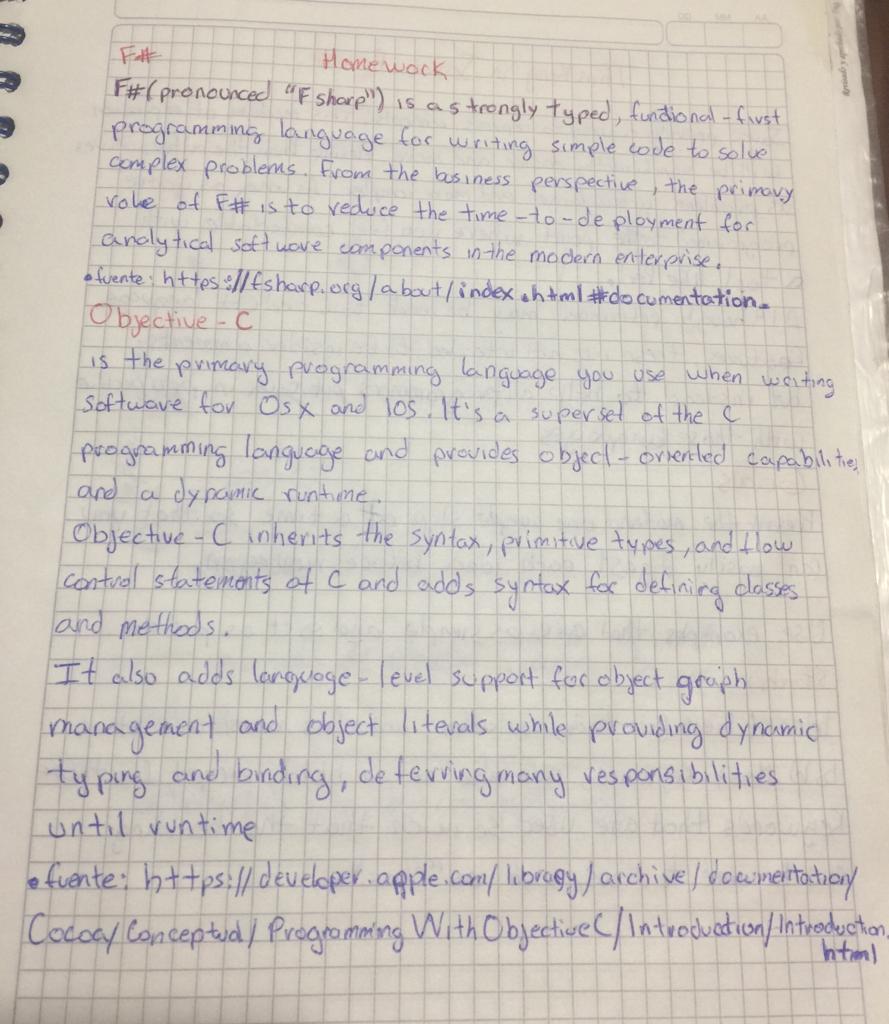 F# Homework
F# (pronounced "F sharp") is a strongly typed, functional-first
programming language for writing simple code to solve
complex problems. From the business perspective, the primary
role of F# is to reduce the time-to-deployment for
analytical software components in the modern enterprise.
• fuente: https://fsharp.org/about/index.html#documentation.
Objective-C
is the primary programming language you use when writing
software for OSX and IOS. It's a superset of the C
programming language and provides object-oriented capabilities
and a dynamic runtime.
Objective-C inherits the syntax, primitive types, and flow
control statements of C and adds syntax for defining classes
and methods.
It also adds language-level support for object graph
management and object literals while providing dynamic
typing and binding, deferring many responsibilities
until runtime
• fuente: https://developer.apple.com/library/archive/documentation/
Cocoa/Conceptual/ProgrammingWithObjectiveC/Introduction/Introduction.
html